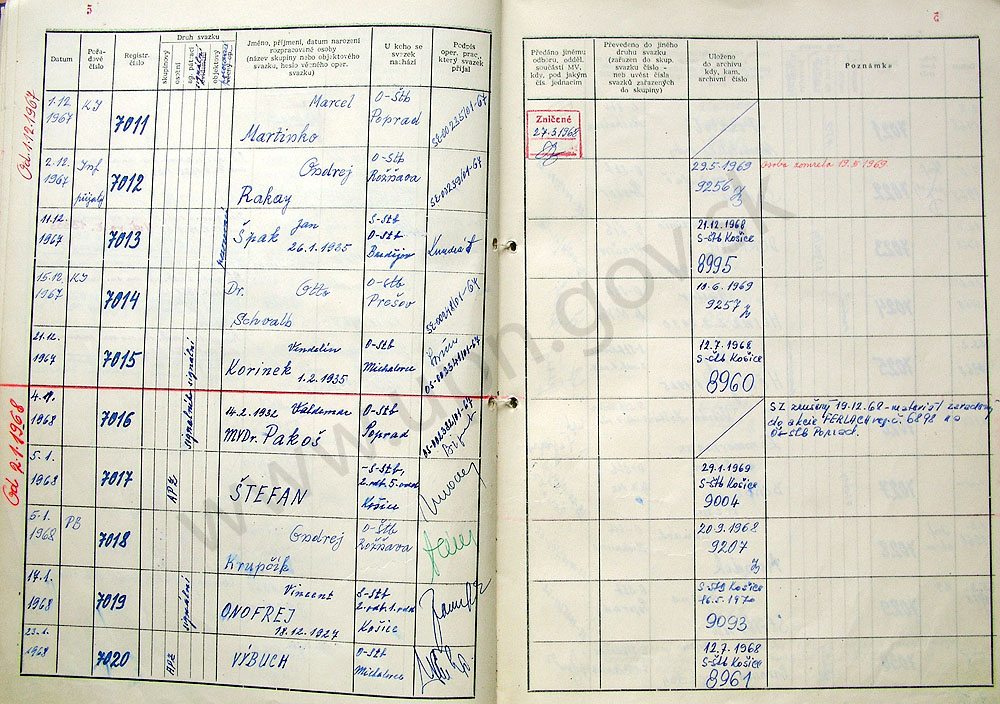 5
Datum
Pořadové číslo
Registr. číslo
Druh svazku
skupinový
osobní
signální
objektový
Jméno, příjmení, datum narození
rozpracované osoby
(název skupiny nebo objektového
svazku, heslo věného oper.
svazku)
U koho se
svazek
nachází
Podpis
oper. prac.,
který svazek
přijal
Od 1.12.1967
1.12. 1967
KI
7011
Marcel
Martinko
O-Štb
Poprad
2.12. 1967
Inf
7012
Ondrej
Rakay
O-Štb
Rožňava
11.12. 1967
7013
Jan
Špak 26.1.1925
S-Štb
O-Štb
Bardějov
15.12. 1967
KI
7014
Dr. Otto
Schvalb
O-Štb
Prešov
21.12. 1967
7015
signální
Vendelín
Korinek 1.2.1935
O-Štb
Michalovce
Od 2.1.1968
4.1. 1968
7016
14.2.1932 Valdemar
MVDr. Pakoš
O-Štb
Poprad
5.1. 1968
7017
ŠTEFAN
S-Štb,
2.odb.5.odd.
Košice
5.1. 1968
PB
7018
Ondrej
Krupčík
O-Štb
Rožňava
17.1. 1968
7019
signální
Vincent
ONOFREJ
18.12.1927
S-Štb
2.odb.1.odd.
Košice
23.1. 1968
7020
VÝBUCH
O-Štb
Michalovce
5
Předáno jinému
odboru, odděl.
součásti MV,
kdy, pod jakým
čís. jednacím
Převedeno do jiného
druhu svazku
(zařazen do skup.
svazku číslo -
neb uvést čísla
svazků zařazených
do skupiny)
Uloženo
do archivu
kdy, kam,
archivní číslo
Poznámka
Zničené
27.3.1968
29.5.1969
9256
osoba zomrela 19.5.1969
21.12.1968
S-štb Košice
8995
10.6.1969
9257
12.7.1968
S-štb Košice
8960
SZ zrušený 19.12.68-materiál zaradený
do akcie FERLACH reg.č. 6898 na
O-štb Poprad.
29.1.1969
S-štb Košice
9004
20.9.1968
9207
S-štb Košice
16.5.1970
9093
12.7.1968
S-štb Košice
8961
www.upn.gov.sk